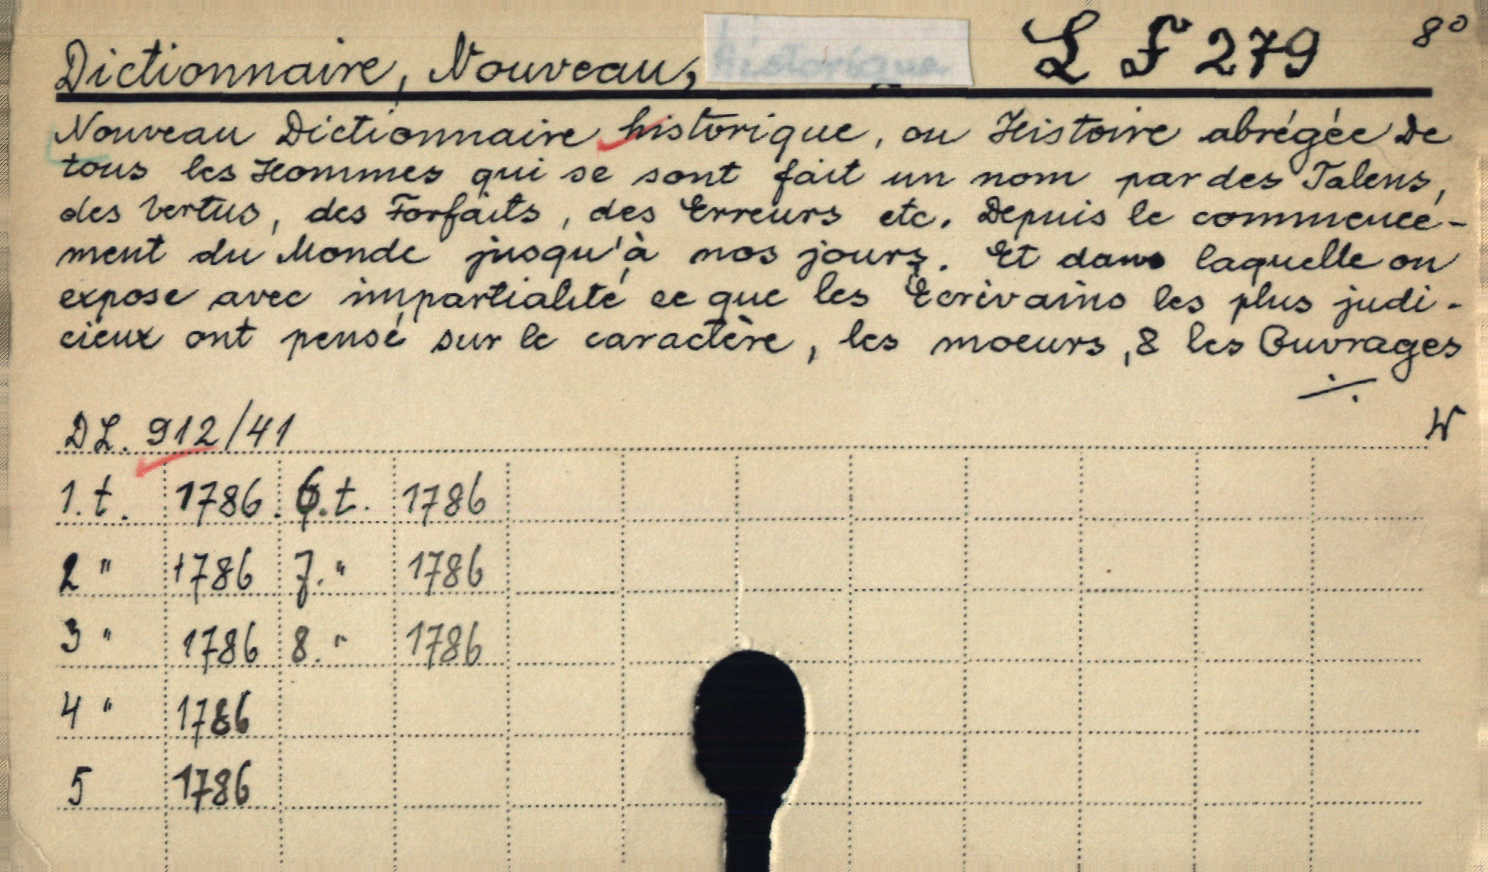 Dictionnaire, Nouveau, historique L F 279 8°
Nouveau Dictionnaire historique, ou Histoire abrégée de
tous les Hommes qui se sont fait un nom par des Talens,
des Vertus, des Forfaits, des Erreurs etc. Depuis le commence-
ment du Monde jusqu'à nos jours. Et dans laquelle on
expose avec impartialité ce que les Ecrivains les plus judi-
cieux ont pensé sur le caractère, les moeurs, & les Ouvrages
./.
W
DL. 912/41
1. t. 1786. 6. t. 1786
2 " 1786 7. " 1786
3 " 1786 8. " 1786
4 " 1786
5 1786